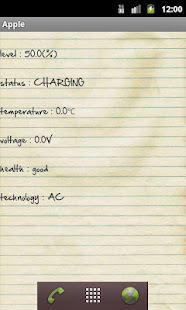 12:00
Apple
level : 50.0(%)
status : CHARGING
temperature : 0.0℃
voltage : 0.0V
health : good
technology : AC